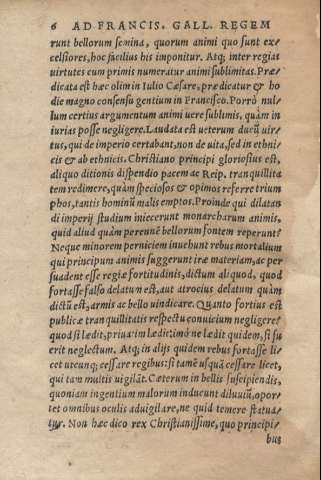 6 AD FRANCIS. GALL. REGEM
runt bellorum semina, quorum animi quo sunt ex⸗
celsiores, hoc facilius his imponitur. Atq; inter regias
uirtutes cum primis numeratur animi sublimitas. Præ⸗
dicata est hæc olim in Iulio Cæsare, prædicatur & ho
die magno consensu gentium in Francisco. Porrò nul⸗
lum certius argumentum animi uere sublimis, quàm in
iurias posse negligere. Laudata est ueterum ducũ uir⸗
tus, qui de imperio certabant, non de uita, sed in ethni⸗
cis & ab ethnicis. Christiano principi gloriosius est,
aliquo ditionis dispendio pacem ac Reip. tranquillita
tem redimere, quàm speciosos & opimos referre trium
phos, tantis hominũ malis emptos. Proinde qui dilatan
di imperij studium iniecerunt monarcharum animis,
quid aliud quàm perennẽ bellorum fontem reperunt?
Neque minorem perniciem inuehunt rebus mortalium
qui principum animis suggerunt iræ materiam, ac per
suadent esse regiæ fortitudinis, dictum aliquod, quod
fortasse falso delatum est, aut atrocius delatum quàm
dictũ est, armis ac bello uindicare. Quanto fortius est
publicæ tranquillitatis respectu conuicium negligere?
quod si lædit, priuatim lædit: imò ne lædit quidem, si fu
erit neglectum. Atq; in alijs quidem rebus fortasse li⸗
cet utcunq; cessare regibus: si tamẽ usquã cessare licet,
qui tam multis uigilãt. Cæterum in bellis suscipiendis,
quoniam ingentium malorum inducunt diluuiũ, opor⸗
tet omnibus oculis aduigilare, ne quid temere statua⸗
tur. Non hæc dico rex Christianissime, quo principi⸗
bus